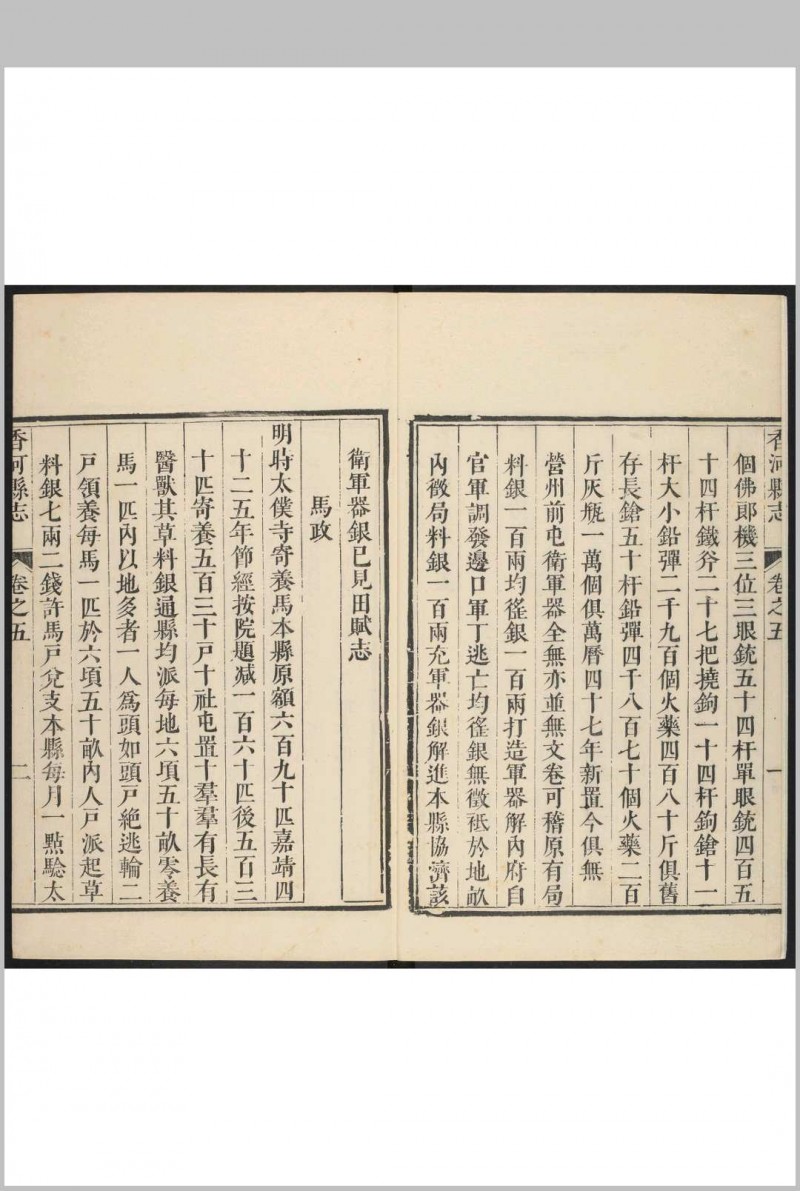 香河縣志 卷之五 一
個佛郎機三位三眼銃五十四杆單眼銃四百五
十四杆鐵斧二十七把撓鉤一十四杆鉤鎗十一
杆大小鉛彈二千九百個火藥四百八十斤俱舊
存長鎗五十杆鉛彈四千八百七十個火藥二百
斤灰瓶一萬個俱萬曆四十七年新置今俱無
營州前屯衛軍器全無亦並無文卷可稽原有局
料銀一百兩均徭銀一百兩打造軍器解內府自
官軍調發邊口軍丁逃亡均徭銀無徵祗於地畝
內徵局料銀一百兩充軍器銀解進本縣協濟該
衛軍器銀已見田賦志
馬政
明時太僕寺寄養馬本縣原額六百九十匹嘉靖四
十二五年節經按院題減一百六十匹後五百三
十匹寄養五百三十戶十社屯置十羣羣有長有
醫獸其草料銀通縣均派每地六項五十畝零養
馬一匹內以地多者一人爲頭如頭戶絕逃輪二
戶領養每馬一匹於六項五十畝內人戶派起草
料銀七兩二錢許馬戶兌支本縣每月一點騐太
香河縣志 卷之五 二